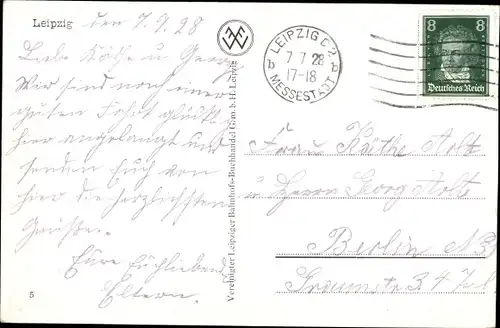 Leipzig den 7.7.28
Liebe Käthe u Georg
Wir sind nach einer
guten Fahrt glückl.
hier angelangt und
senden Euch von
hier die herzlichsten
Grüße.
Eure Euchliebend
Eltern.
5
Vereinigter Leipziger Bahnhofs-Buchhandel G.m.b.H. Leipzig
LEIPZIG C 2
b 7 7 28 b
17-18
MESSESTADT
8 8
Deutsches Reich
Frau Käthe Arlt
u Herrn Georg Arlt
Berlin
34